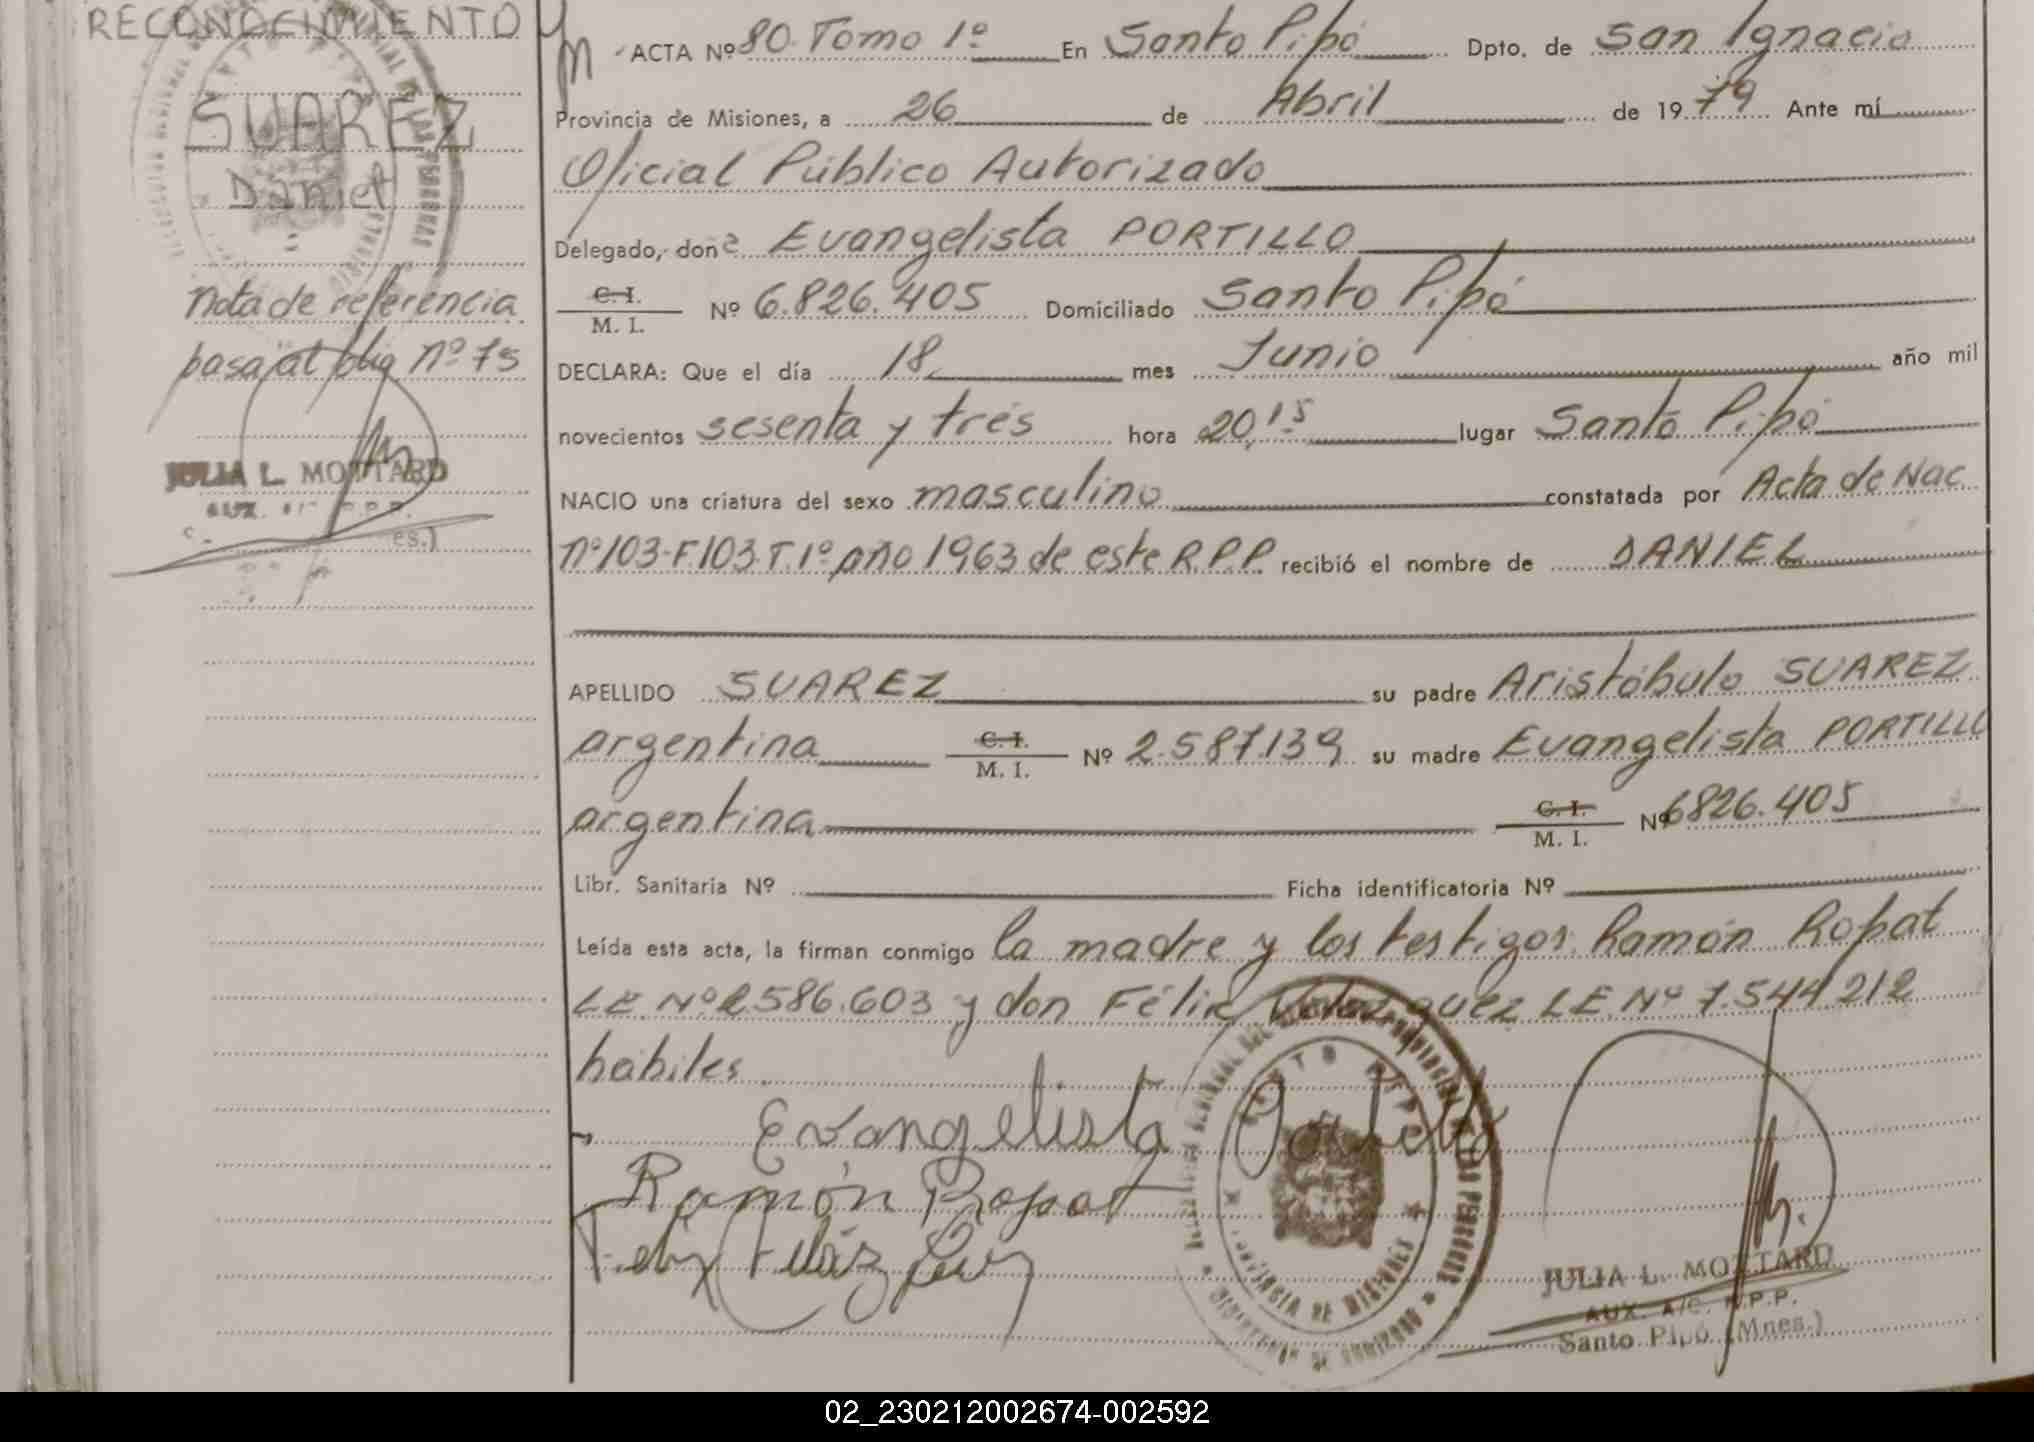 RECONOCIMIENTO
SUAREZ
Daniel
nota de referencia
pasa al blig nº 75
JULIA L. MOTTARD
ACTA Nº 80 Tomo 1º En Santo Pipó Dpto. de San Ignacio
Provincia de Misiones, a 26 de Abril de 1979 Ante mí
Oficial Público Autorizado
Delegado, doña Evangelista PORTILLO
C. I.
M. I. Nº 6.826.405 Domiciliado Santo Pipó
DECLARA: Que el día 18 mes Junio año mil
novecientos sesenta y trés hora 20,15 lugar Santo Pipó
NACIO una criatura del sexo masculino constatada por Acta de Nac
nº 103-F.103.T.1º año 1963 de este R.P.P. recibió el nombre de DANIEL
APELLIDO SUAREZ su padre Aristóbulo SUAREZ
argentina C. I. M. I. Nº 2.587.139 su madre Evangelista PORTILLO
argentina C. I. M. I. Nº 6826.405
Libr. Sanitaria Nº Ficha identificatoria Nº
Leída esta acta, la firman conmigo la madre y los testigos Ramón Ropat
LE Nº 2586.603 y don Félix Velazquez LE Nº 7.544 212
hábiles.
Evangelista Portillo
Ramón Ropat
PROVINCIA DE MISIONES
JULIA L. MOTTARD
AUX. A/C. R.P.P.
Santo Pipó (Mnes.)
02_230212002674-002592